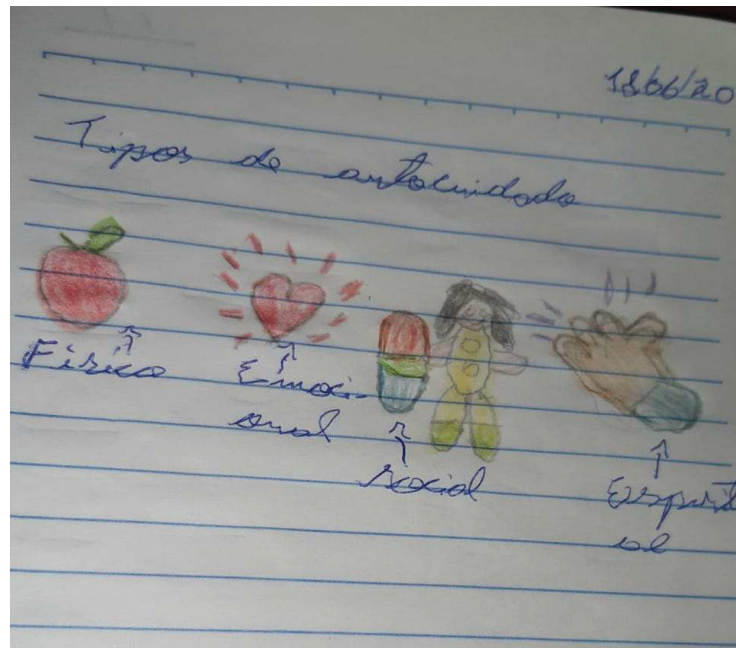 18/06/20
Tipos de autocuidado
Físico
Emoci-
onal
Social
Espirit
ual